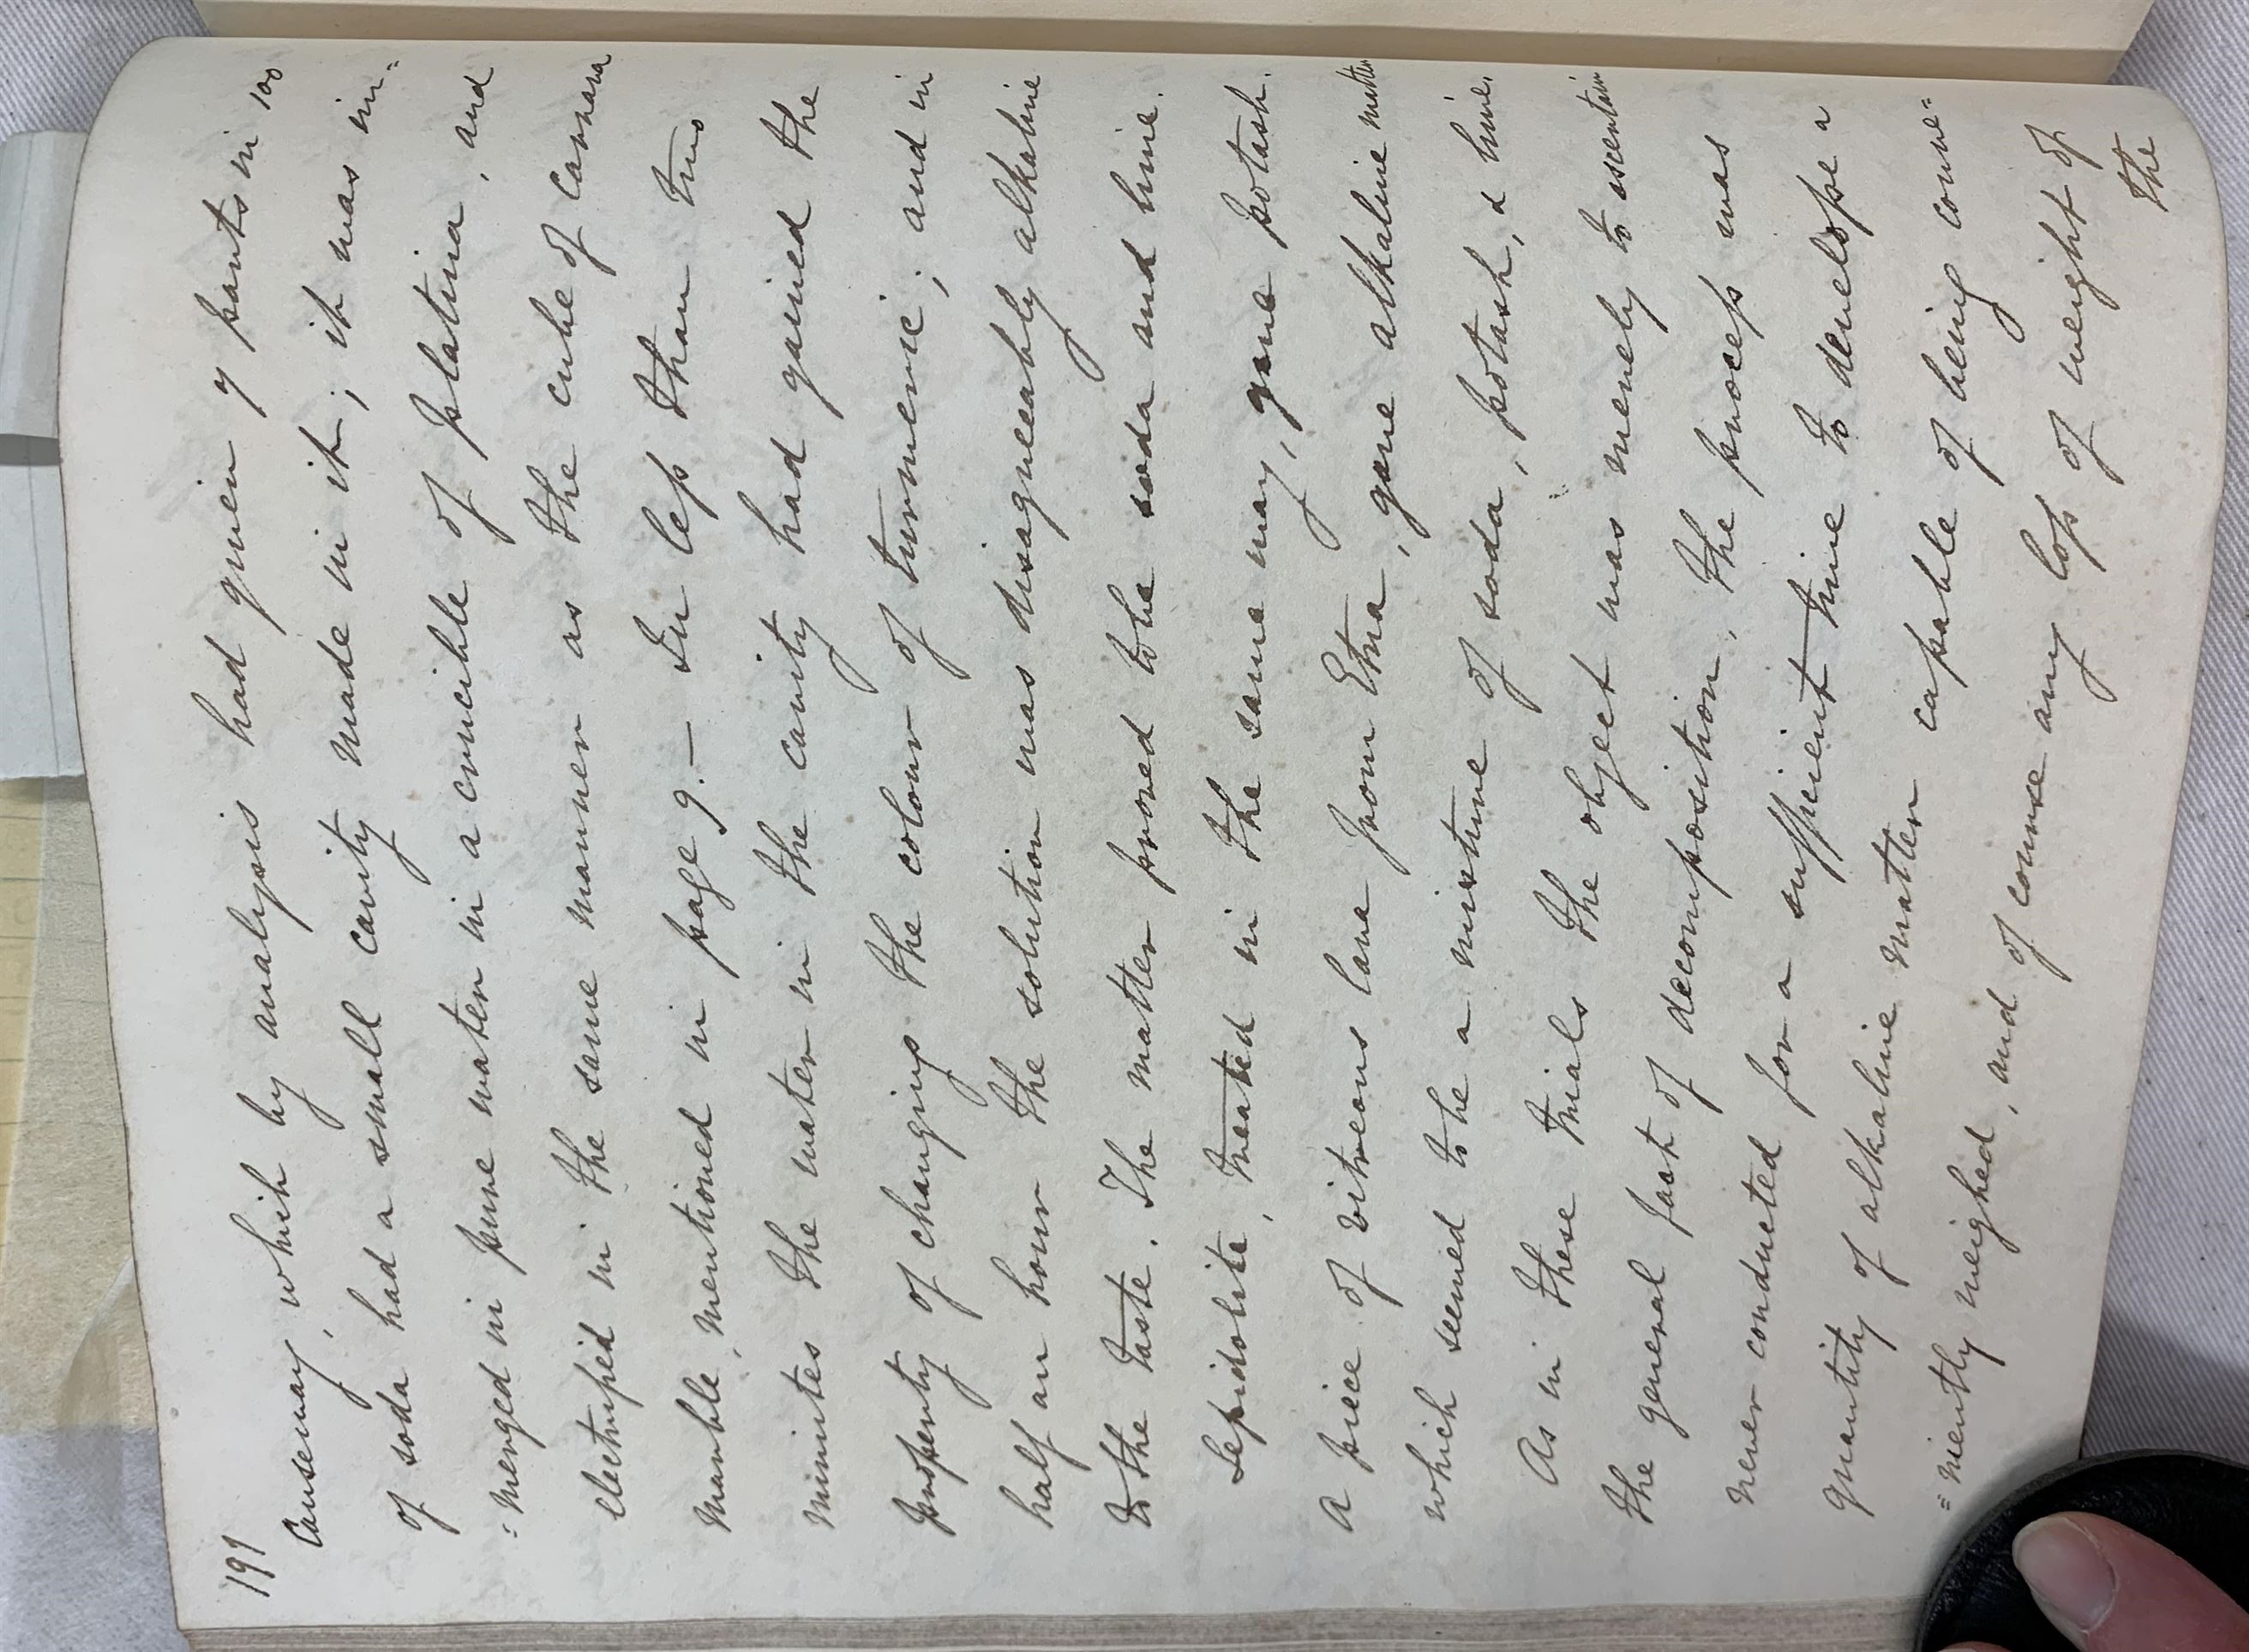 197
Causeway, which by analysis had given 7 parts in 100
of soda had a small cavity made in it; it was im=
=merged in pure water in a crucible of platina, and
electrified in the same manner as the cube of Carrara
marble, mentioned in page 9.— In less than two
minutes the water in the cavity had gained the
property of changing the colour of turmeric; and in
half an hour the solution was disagreeably alkaline
to the taste. The matter proved to be soda and lime.
Lepidolite, treated in the same way, gave potash.
A piece of vitreous lava from Etna, gave alkaline matter
which seemed to be a mixture of soda, potash, & lime.
As in these trials the object was merely to ascertain
the general fact of decomposition, the process was
never conducted for a sufficient time to develope a
quantity of alkaline matter capable of being conve=
=niently weighed, and of course any loss of weight of
the